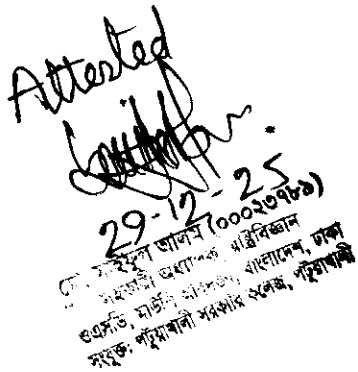 Attested
29-12-25
মোঃ সাইফুল আলম (০০০২৩৭৮১)
সহকারী অধ্যাপক, রাষ্ট্রবিজ্ঞান
ওএসডি, মাউশি অধিদপ্তর, বাংলাদেশ, ঢাকা
সংযুক্ত: পটুয়াখালী সরকারি কলেজ, পটুয়াখালী